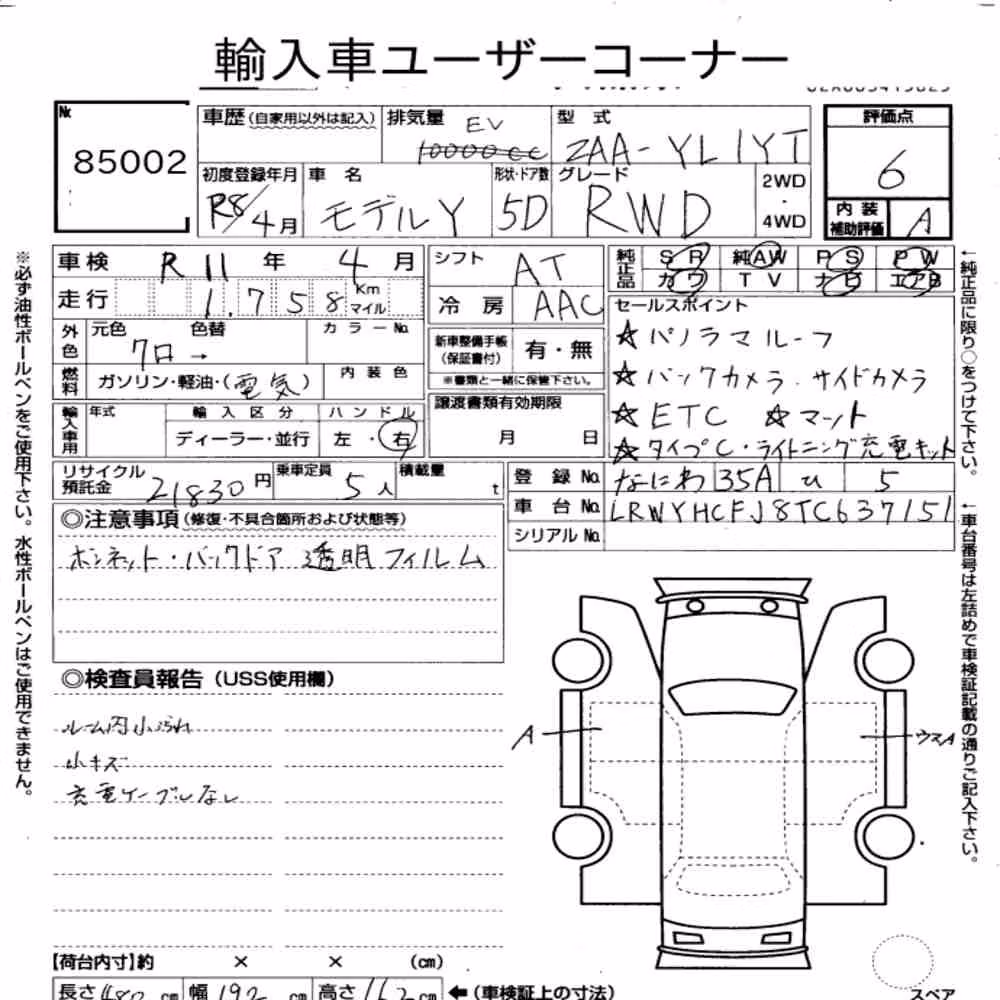 輸入車ユーザーコーナー
№ 85002
車歴(自家用以外は記入) 排気量 EV 10000cc 型式 ZAA-YL1YT
評価点 6
初度登録年月 R8/4月 車名 モデルY 形状・ドア数 5D グレード RWD 2WD・4WD
内装補助評価 A
車検 R11年 4月 シフト AT 純正品 SR 純AW PS PW
カワ TV ナビ エアB
走行 1,758 Km マイル 冷房 AAC
セールスポイント
外色 元色 クロ→ 色替 カラーNo.
新車整備手帳(保証書付) 有・無
※書類と一緒に保管下さい。
☆パノラマルーフ
燃料 ガソリン・軽油・(電気) 内装色
☆バックカメラ.サイドカメラ
輸入車用 年式 輸入区分 ハンドル
譲渡書類有効期限
☆ETC ☆マット
ディーラー・並行 左・右
月 日
☆タイプC・ライトニング充電キット
リサイクル預託金 21830円 乗車定員 5人 積載量 t
登録No. なにわ 35A ひ 5
車台No. LRWYHCFJ8TC637151
シリアルNo.
◎注意事項(修復・不具合箇所および状態等)
ボンネット・バックドア 透明フィルム
◎検査員報告(USS使用欄)
ルーム内小汚れ
小キズ
充電ケーブルなし
A
ウスA
【荷台内寸】約 × × (cm)
長さ480cm 幅192cm 高さ162cm ←(車検証上の寸法)
スペア
※必ず油性ボールペンをご使用下さい。水性ボールペンはご使用できません。
←純正品に限り○をつけて下さい。
←車台番号は左詰めで車検証記載の通りご記入下さい。